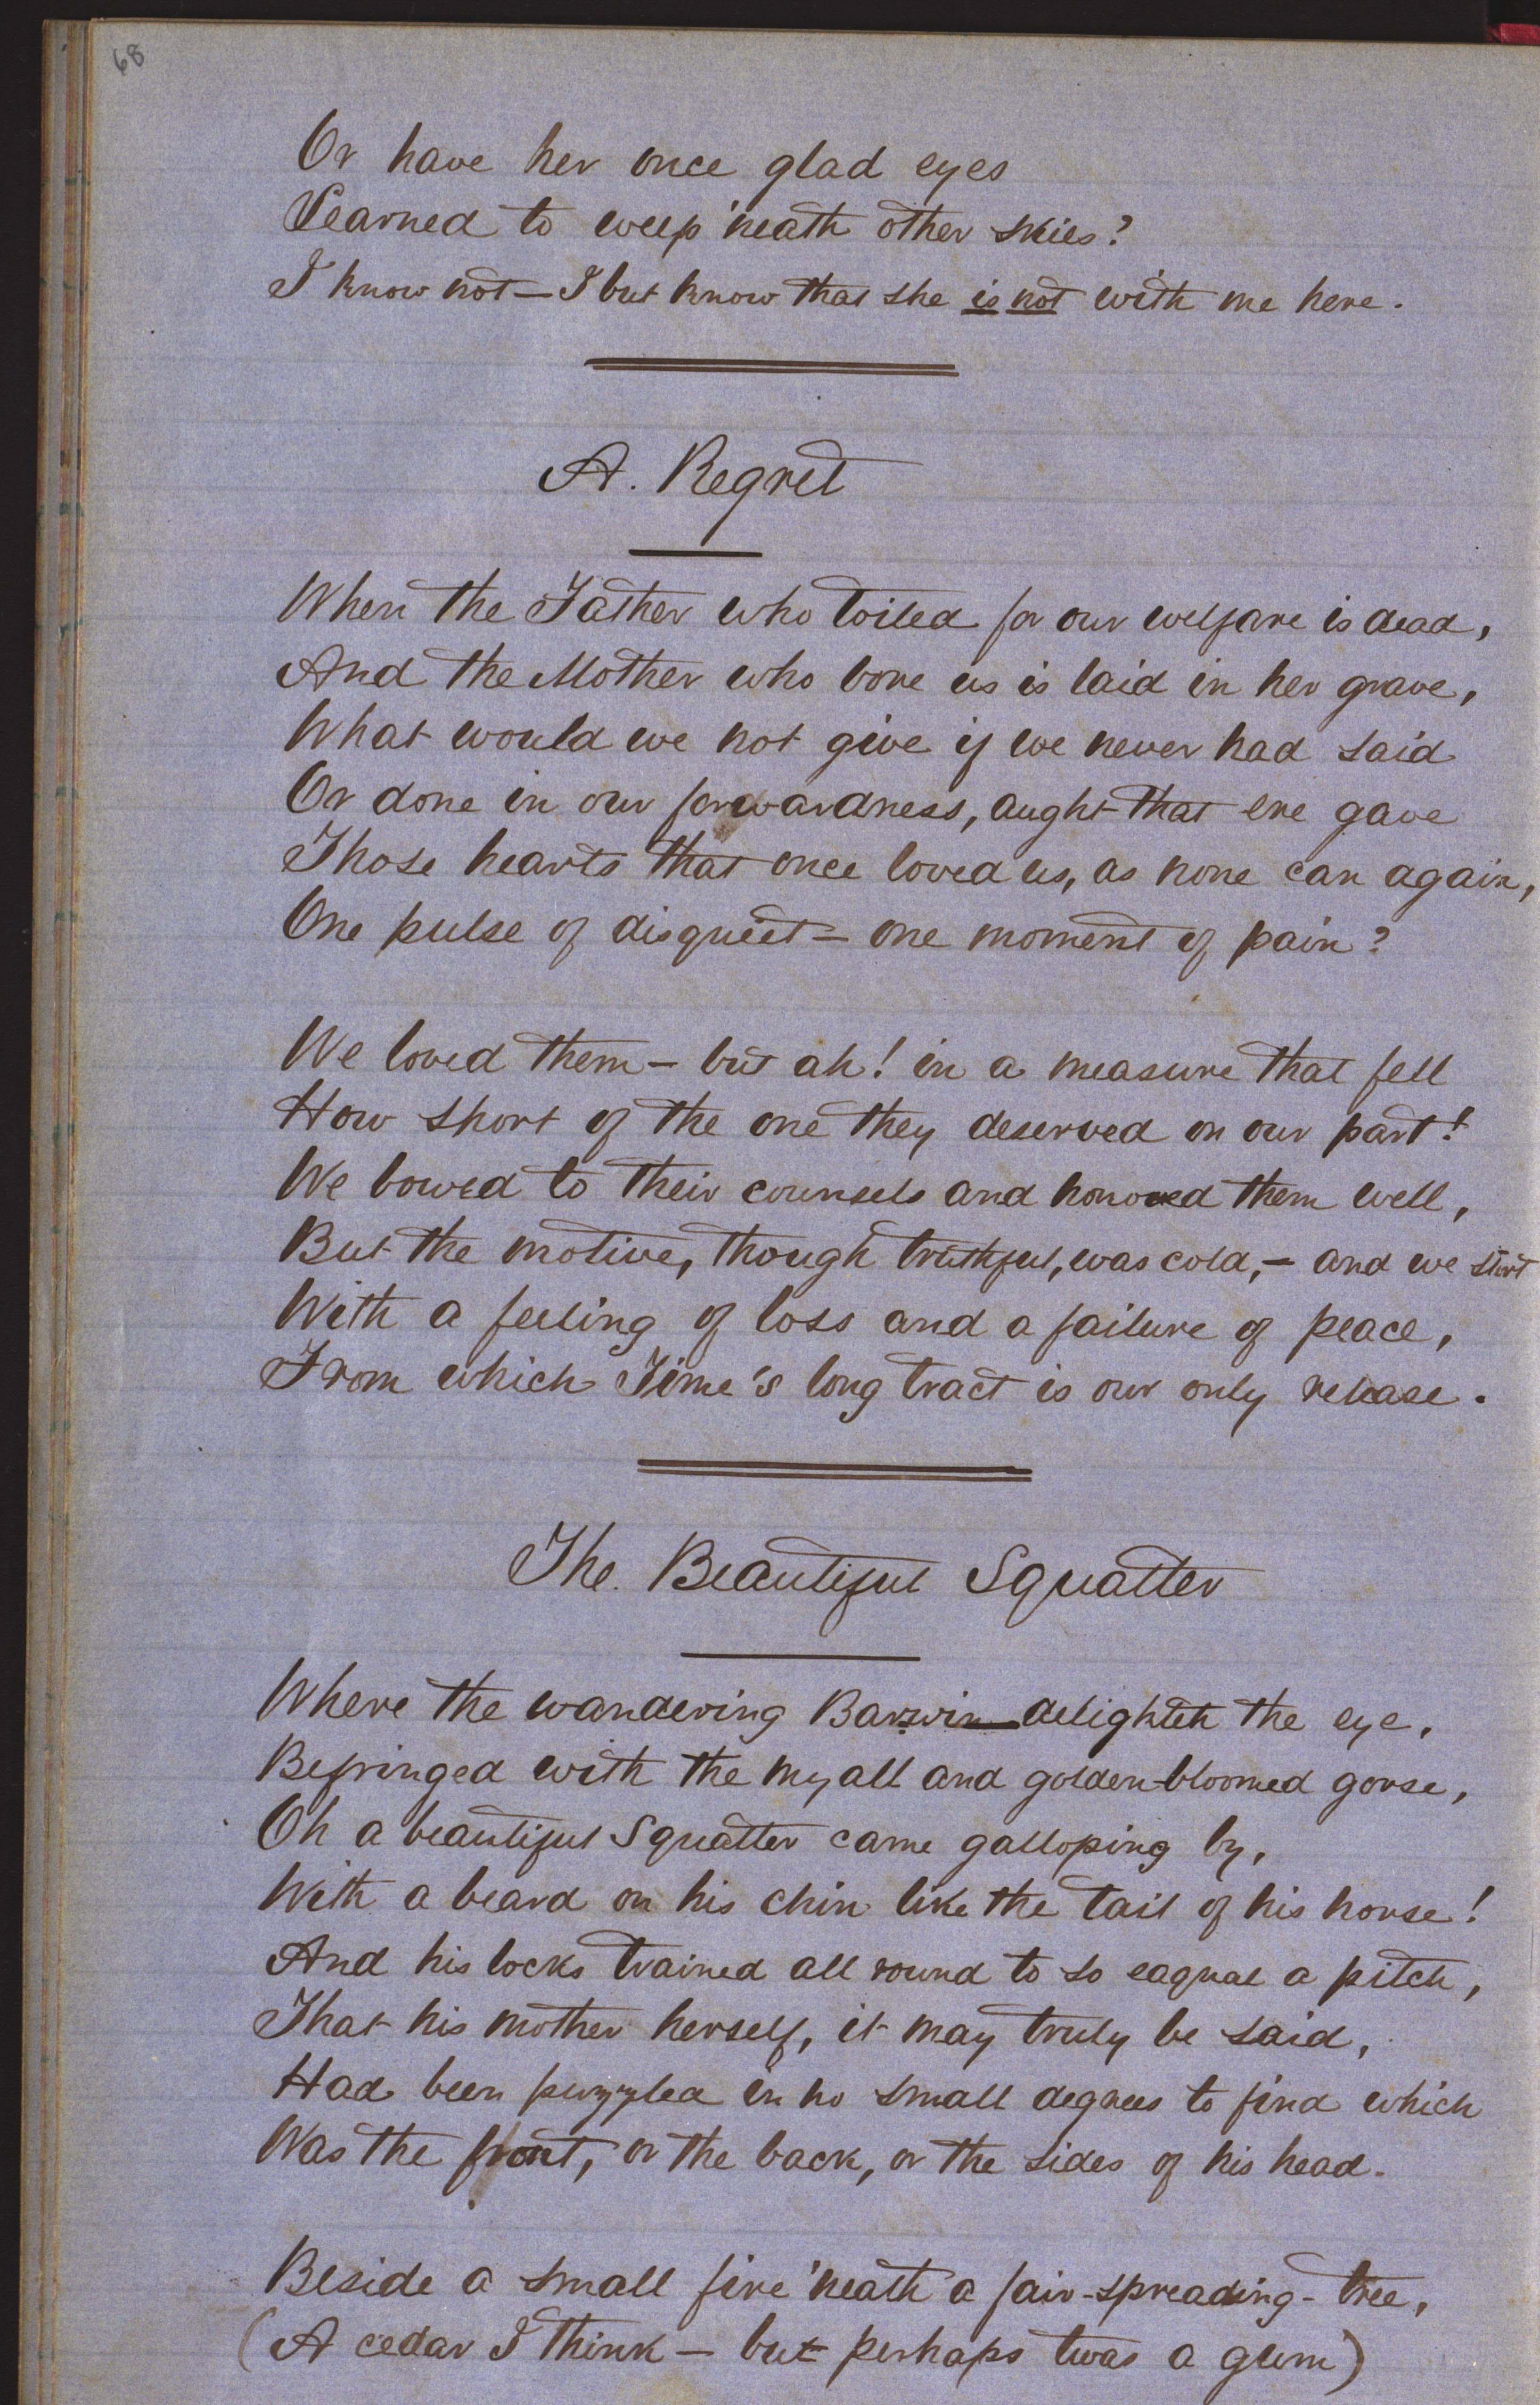 68
Or have her once glad eyes
Learned to weep 'neath other skies?
I know not — I but know that she is not with me here.
A. Regret
When the Father who toiled for our welfare is dead,
And the Mother who bore us is laid in her grave,
What would we not give if we never had said
Or done in our forwardness, aught that ere gave
Those hearts that once loved us, as none can again,
One pulse of disquiet — one moment of pain?
We loved them — but ah! in a measure that fell
How short of the one they deserved on our part!
We bowed to their counsels and honored them well,
But the motive, though truthful, was cold, — and we start
With a feeling of loss and a failure of peace,
From which Time's long tract is our only release.
The. Beautiful Squatter
Where the wandering Barwin delighteth the eye,
Befringed with the myall and golden-bloomed gorse,
Oh a beautiful Squatter came galloping by,
With a beard on his chin like the tail of his horse!
And his locks trained all round to so eaqual a pitch,
That his mother herself, it may truly be said,
Had been puzzled in no small degrees to find which
Was the front, or the back, or the sides of his head.
Beside a small fire 'neath a fair-spreading-tree,
(A cedar I think — but perhaps twas a gum)